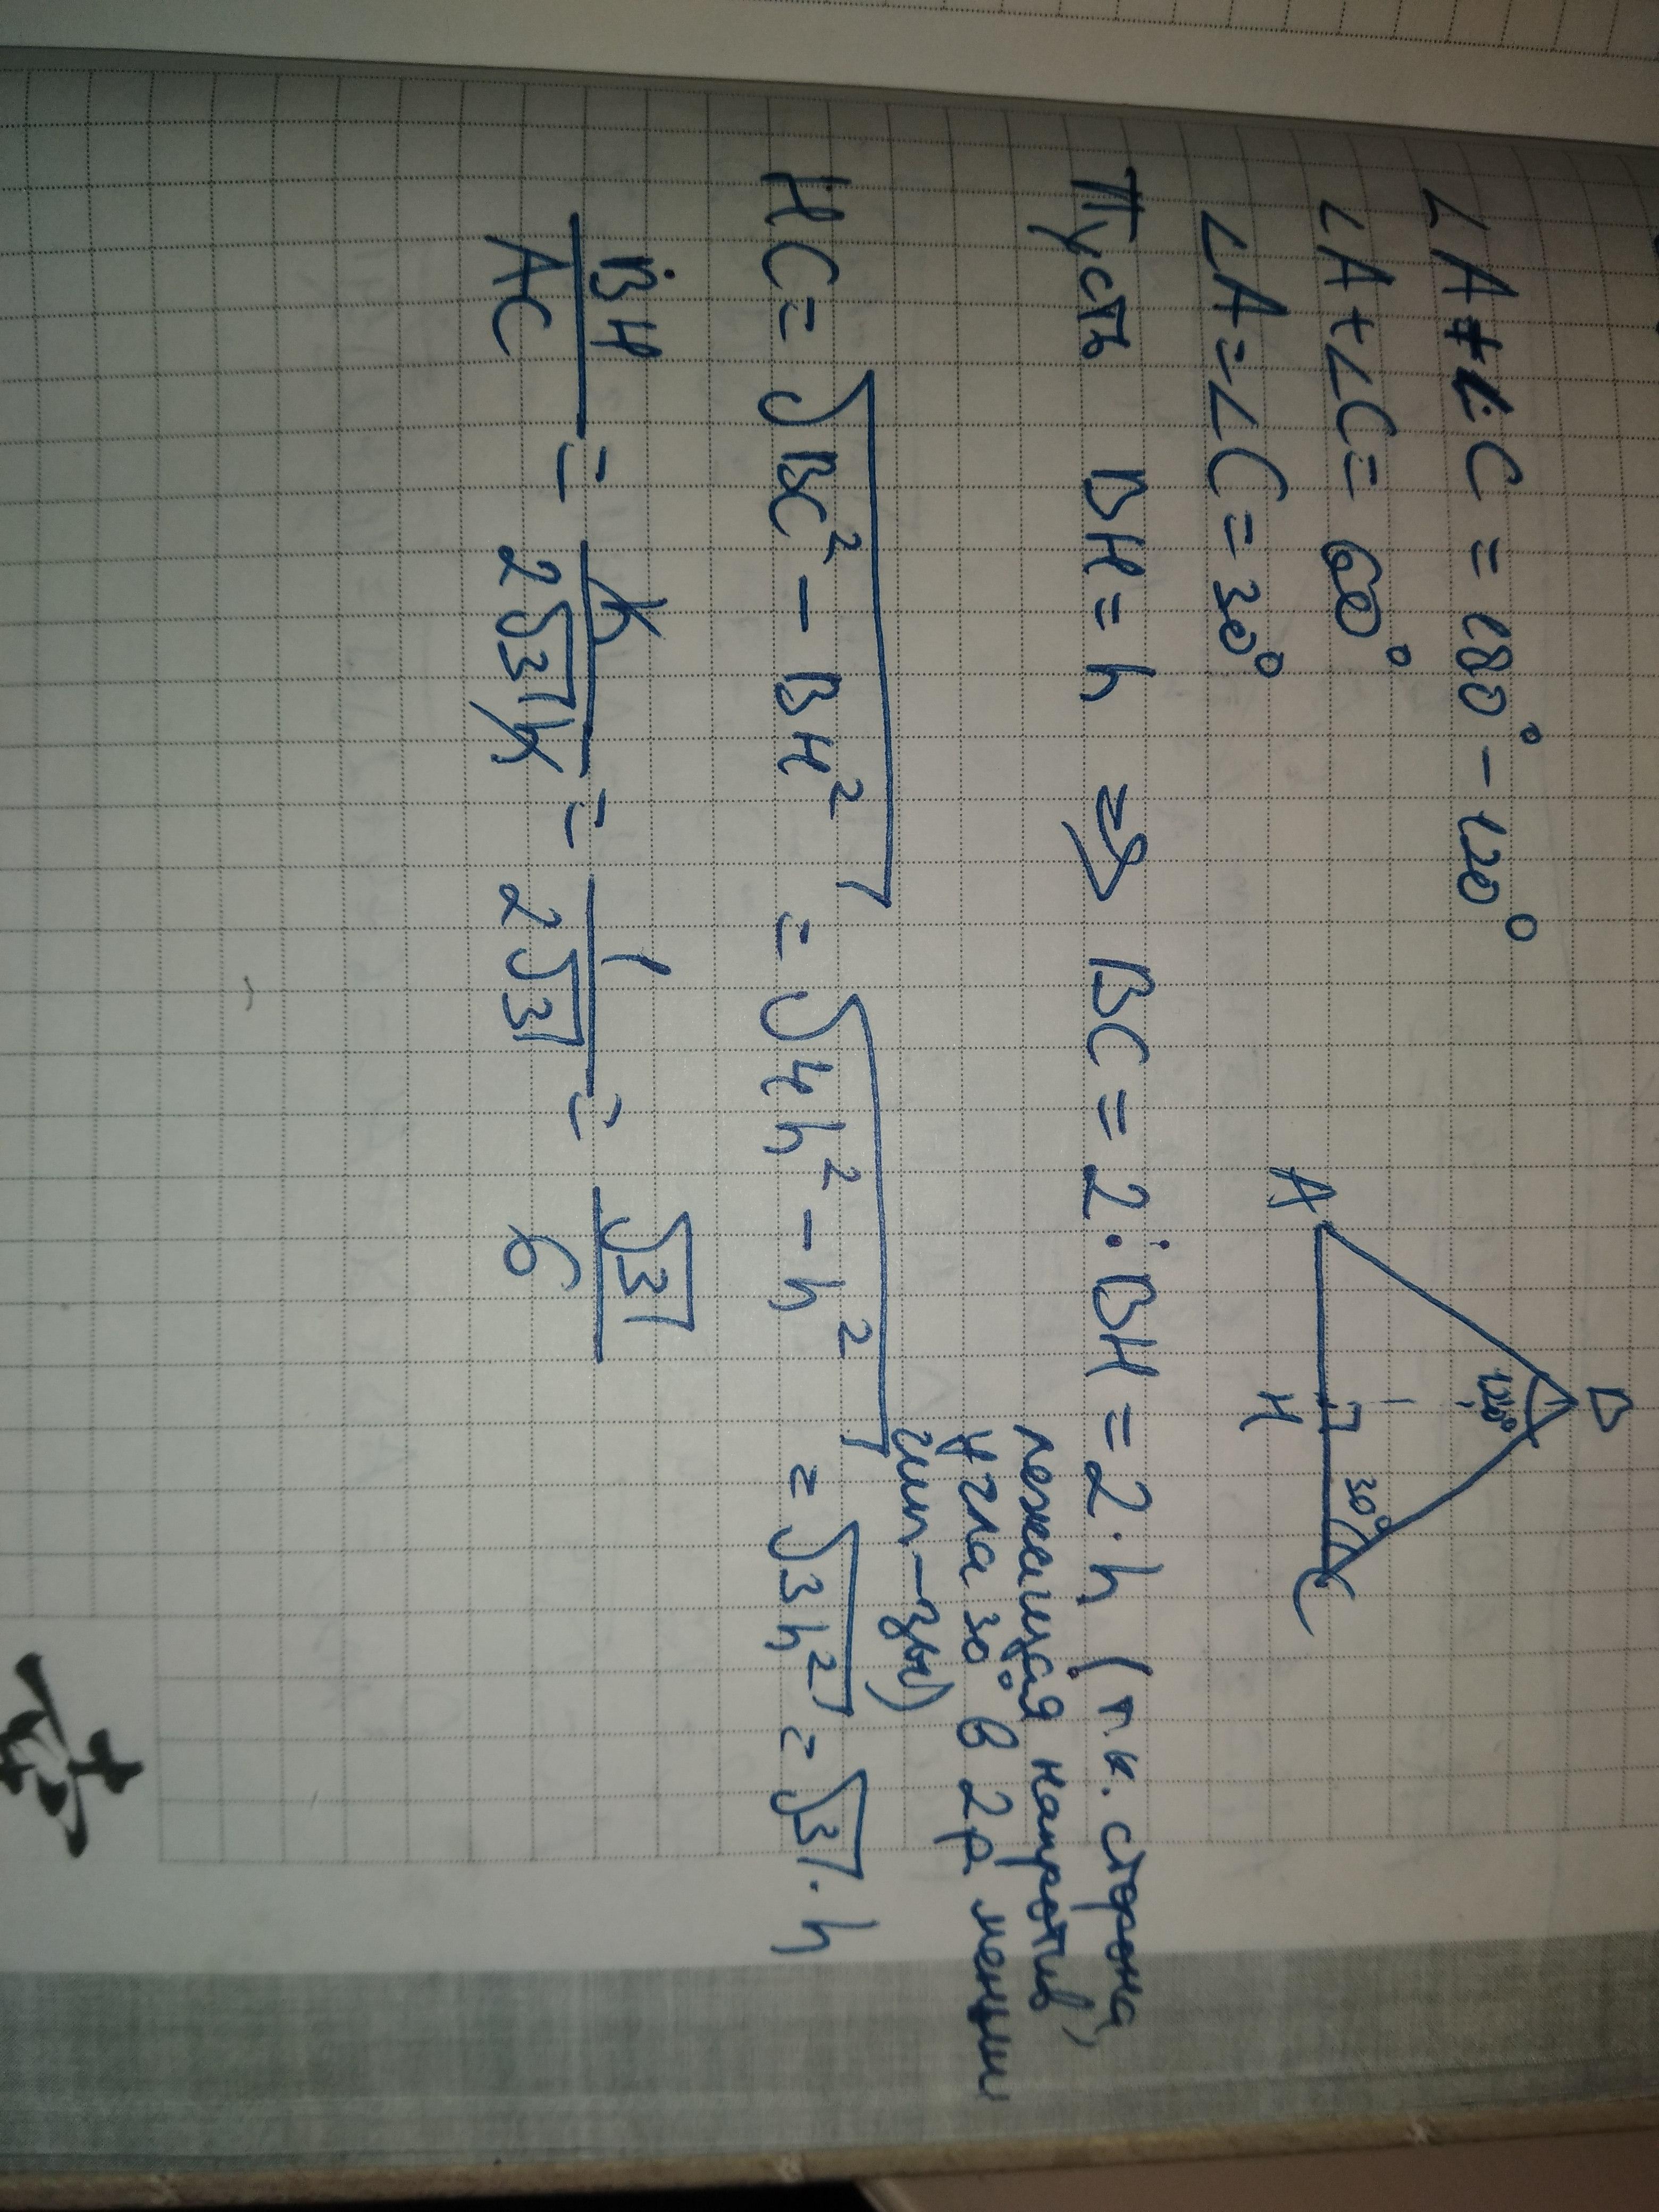 ∠A+∠C = 180° - 120°
∠A+∠C = 60°
∠A=∠C=30°
B
120°
30°
A
H
C
Пусть BH = h ⇒ BC = 2·BH = 2·h (т.к. сторона,
лежащая напротив
угла 30° в 2р меньши
гип-зы)
HC = √(BC² - BH²) = √(4h² - h²) = √(3h²) = √3·h
BH/AC = h/(2√3h) = 1/(2√3) = √3/6